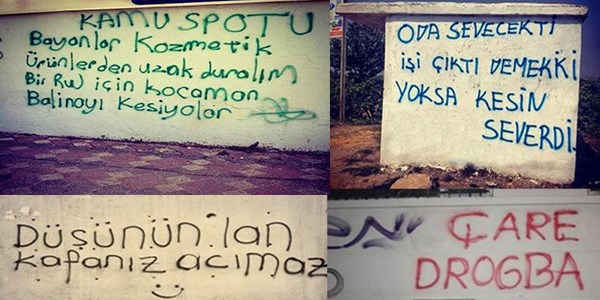 KAMU SPOTU
Bayanlar Kozmetik
ürünlerden uzak duralım
Bir Ruj için kocaman
Balinayı Kesiyolar
ODA SEVECEKTİ
işi ÇIKTI DEMEKKİ
YOKSA KESİN
SEVERDİ.
Düşünün lan
kafanız acımaz
ÇARE
DROGBA